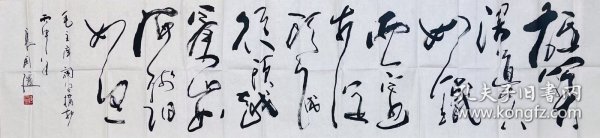 雄关
漫道真
如铁
而今
迈步从
头越
从头越
苍山如
海残阳
如血
毛主席词
丙申
孔夫子旧书网
kongfz.com